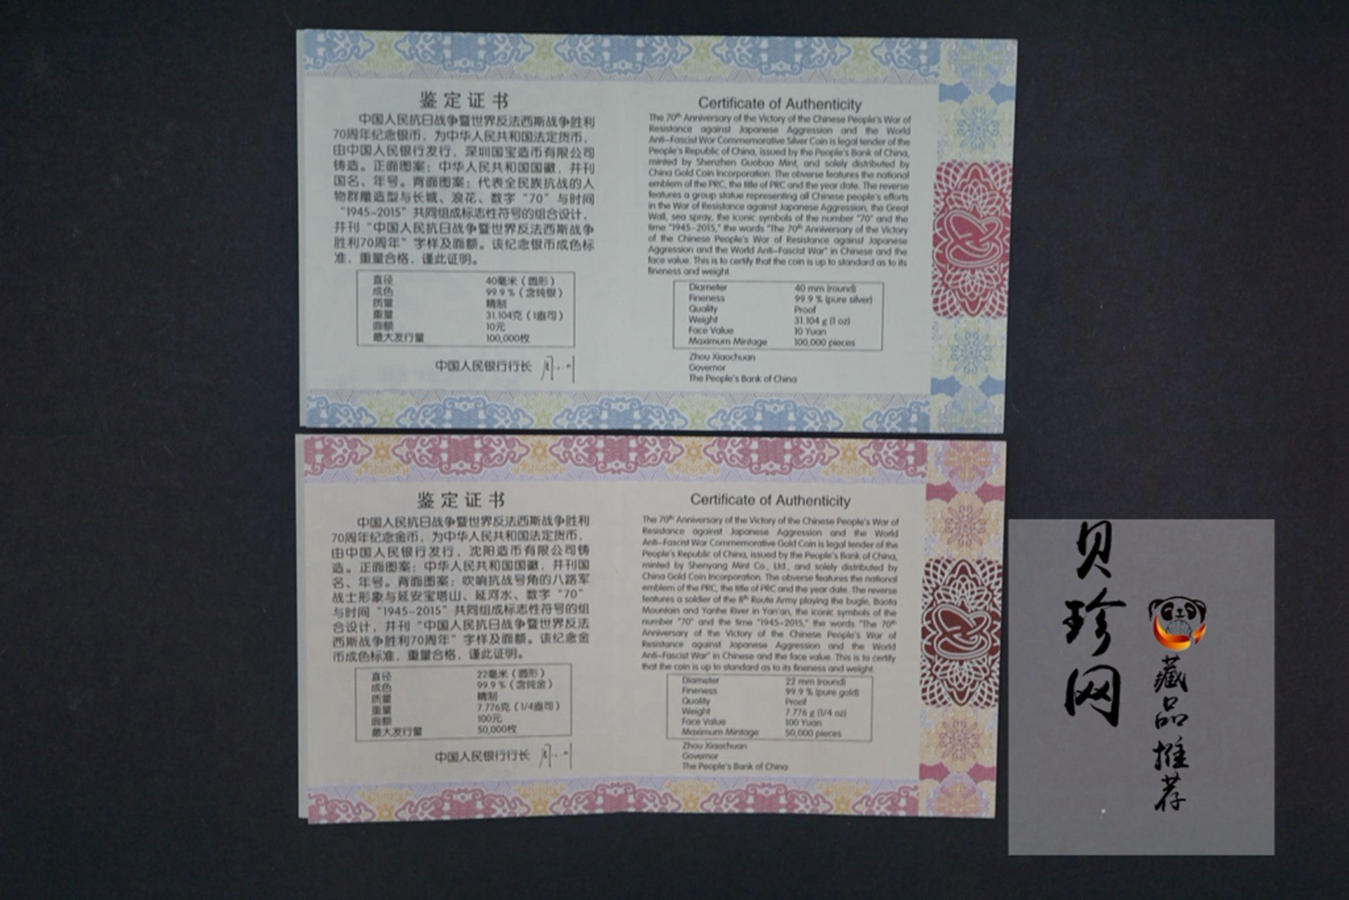 鉴定证书
中国人民抗日战争暨世界反法西斯战争胜利
70周年纪念银币，为中华人民共和国法定货币，
由中国人民银行发行，深圳国宝造币有限公司
铸造。正面图案：中华人民共和国国徽，并刊
国名、年号。背面图案：代表全民族抗战的人
物群雕造型与长城、浪花、数字“70”与时间
“1945-2015”共同组成标志性符号的组合设计，
并刊“中国人民抗日战争暨世界反法西斯战争
胜利70周年”字样及面额。该纪念银币成色标
准，重量合格，谨此证明。
直径 40毫米（圆形）
成色 99.9％（含纯银）
质量 精制
重量 31.104克（1盎司）
面额 10元
最大发行量 100,000枚
中国人民银行行长
Certificate of Authenticity
The 70th Anniversary of the Victory of the Chinese People's War of
Resistance against Japanese Aggression and the World
Anti-Fascist War Commemorative Silver Coin is legal tender of the
People's Republic of China, issued by the People's Bank of China,
minted by Shenzhen Guobao Mint, and solely distributed by
China Gold Coin Incorporation. The obverse features the national
emblem of the PRC, the title of PRC and the year date. The reverse
features a group statue representing all Chinese people's efforts
in the War of Resistance against Japanese Aggression, the Great
Wall, sea spray, the iconic symbols of the number "70" and the
time "1945-2015," the words "The 70th Anniversary of the Victory
of the Chinese People's War of Resistance against Japanese
Aggression and the World Anti-Fascist War" in Chinese and the
face value. This is to certify that the coin is up to standard as to its
fineness and weight.
Diameter 40 mm (round)
Fineness 99.9 % (pure silver)
Quality Proof
Weight 31.104 g (1 oz)
Face Value 10 Yuan
Maximum Mintage 100,000 pieces
Zhou Xiaochuan
Governor
The People's Bank of China
鉴定证书
中国人民抗日战争暨世界反法西斯战争胜利
70周年纪念金币，为中华人民共和国法定货币，
由中国人民银行发行，沈阳造币有限公司铸
造。正面图案：中华人民共和国国徽，并刊国
名、年号。背面图案：吹响抗战号角的八路军
战士形象与延安宝塔山、延河水、数字“70”
与时间“1945-2015”共同组成标志性符号的组
合设计，并刊“中国人民抗日战争暨世界反法
西斯战争胜利70周年”字样及面额。该纪念金
币成色标准，重量合格，谨此证明。
直径 22毫米（圆形）
成色 99.9％（含纯金）
质量 精制
重量 7.776克（1/4盎司）
面额 100元
最大发行量 50,000枚
中国人民银行行长
Certificate of Authenticity
The 70th Anniversary of the Victory of the Chinese People's War of
Resistance against Japanese Aggression and the World
Anti-Fascist War Commemorative Gold Coin is legal tender of the
People's Republic of China, issued by the People's Bank of China,
minted by Shenyang Mint Co., Ltd., and solely distributed by
China Gold Coin Incorporation. The obverse features the national
emblem of the PRC, the title of PRC and the year date. The reverse
features a soldier of the 8th Route Army playing the bugle, Baota
Mountain and Yanhe River in Yan'an, the iconic symbols of the
number "70" and the time "1945-2015," the words "The 70th
Anniversary of the Victory of the Chinese People's War of
Resistance against Japanese Aggression and the World
Anti-Fascist War" in Chinese and the face value. This is to certify
that the coin is up to standard as to its fineness and weight.
Diameter 22 mm (round)
Fineness 99.9 % (pure gold)
Quality Proof
Weight 7.776 g (1/4 oz)
Face Value 100 Yuan
Maximum Mintage 50,000 pieces
Zhou Xiaochuan
Governor
The People's Bank of China
贝珍网
藏品推荐